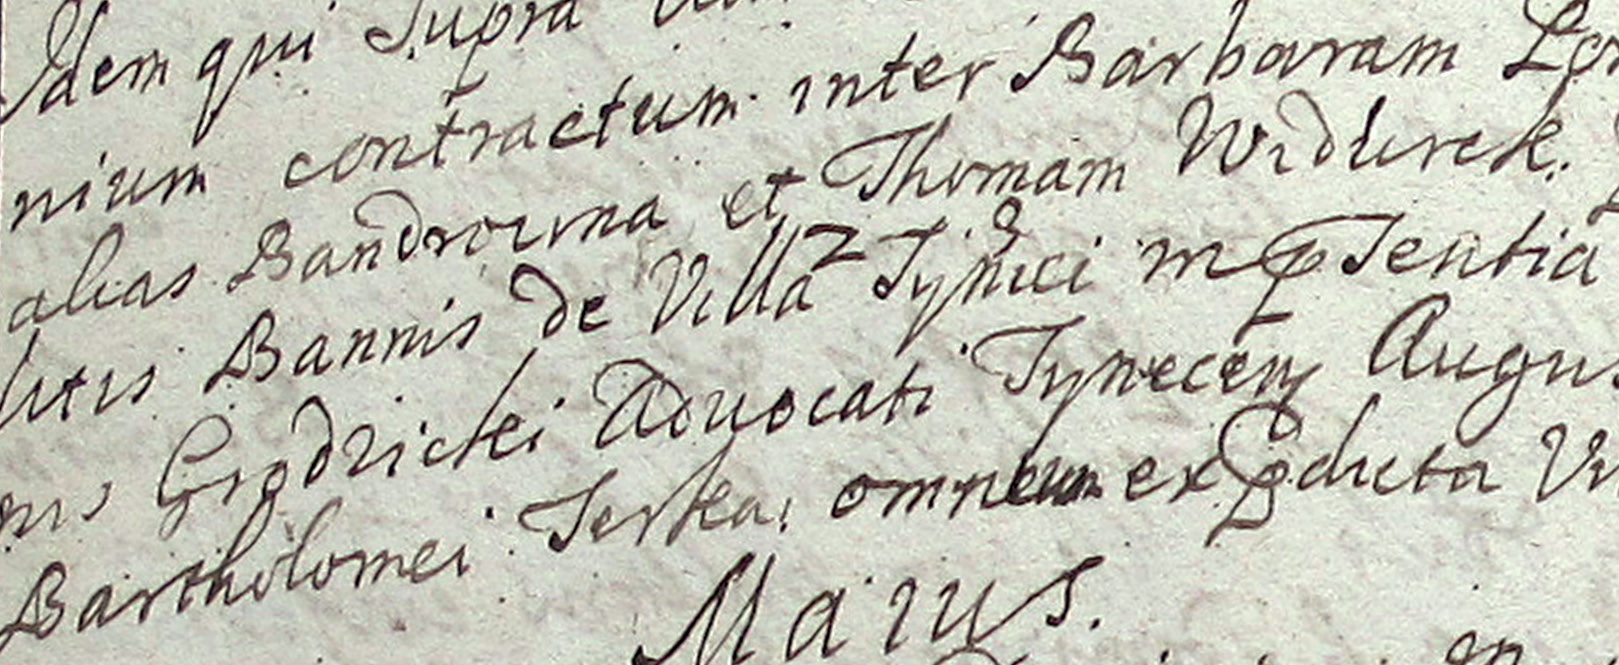 Idem qui Supra
nium contractum inter Barbaram
alias Bandrowna et Thomam Widlurek.
Bannis de Villa Tynieci in pſentia
nis Grodzicki Advocati Tynecen
Bartholomei Serkea omnium ex pdicta
Maius.